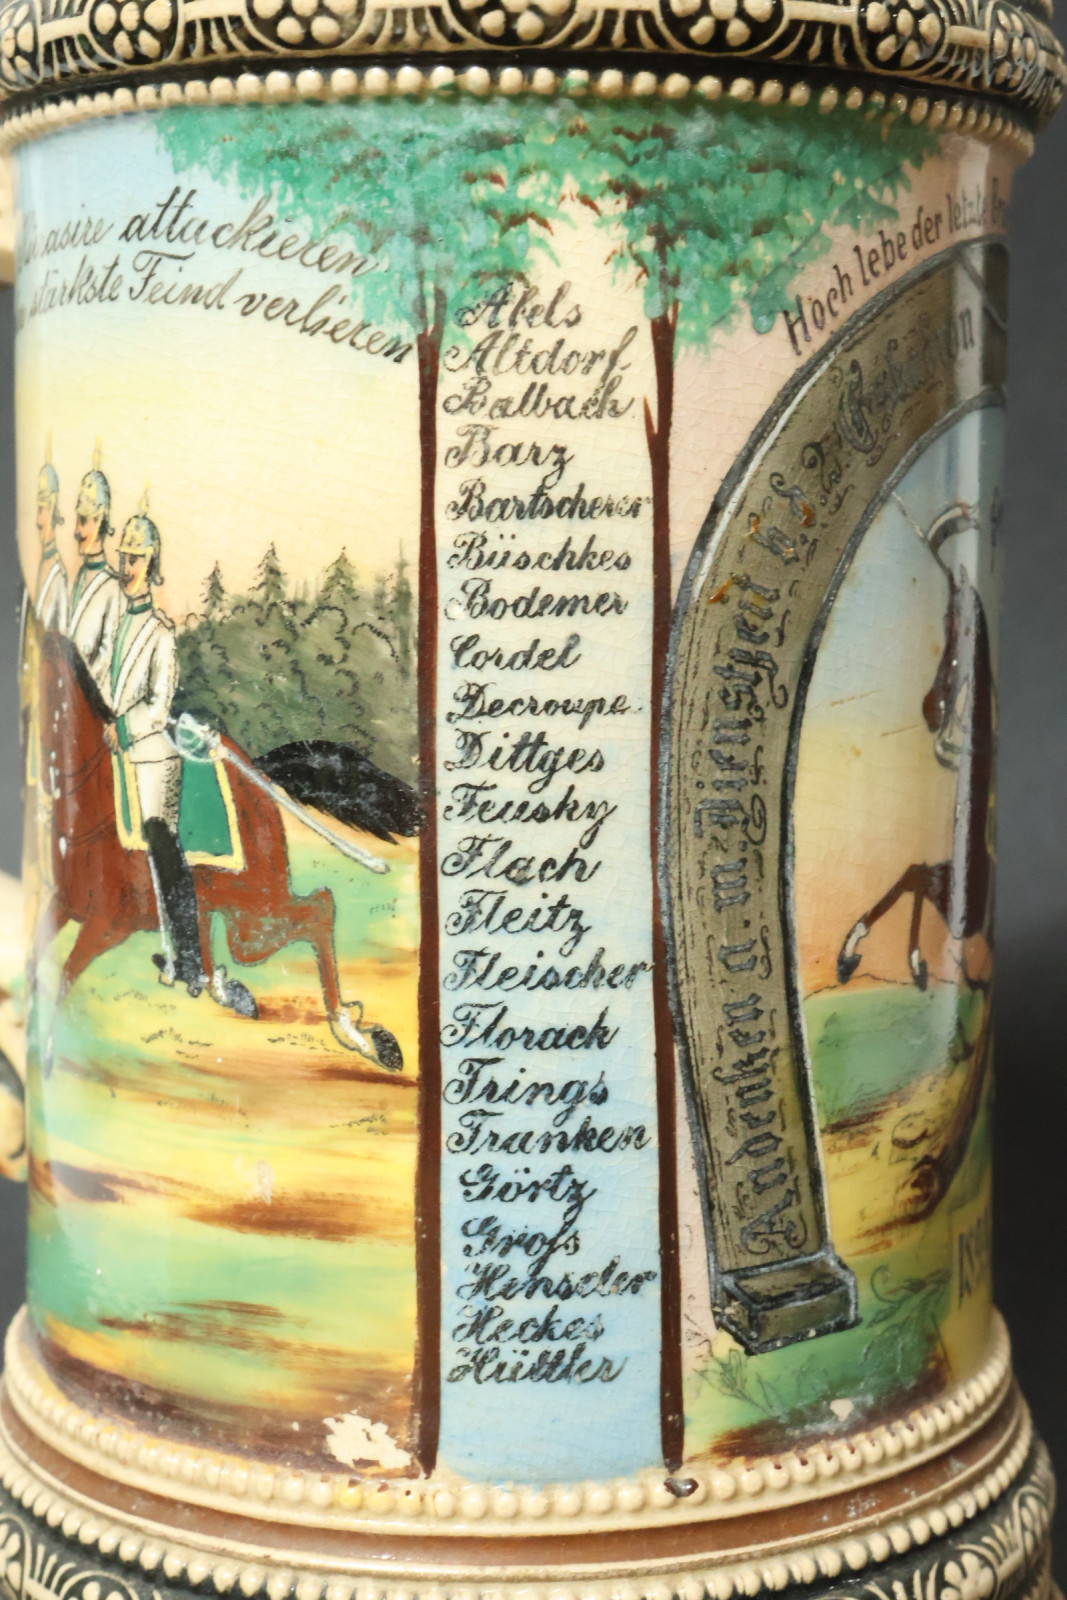 attackieren
stärkste Feind verlieren
Abels
Altdorf
Balbach
Barz
Bartscherer
Büschkes
Bodemer
Cordel
Decroupe
Dittges
Feusky
Flach
Fleitz
Fleischer
Florack
Frings
Franken
Görtz
Groſs
Henseler
Heckes
Hüttler
Hoch lebe der letzte
Andenken a. m. Dienstzeit b. d.